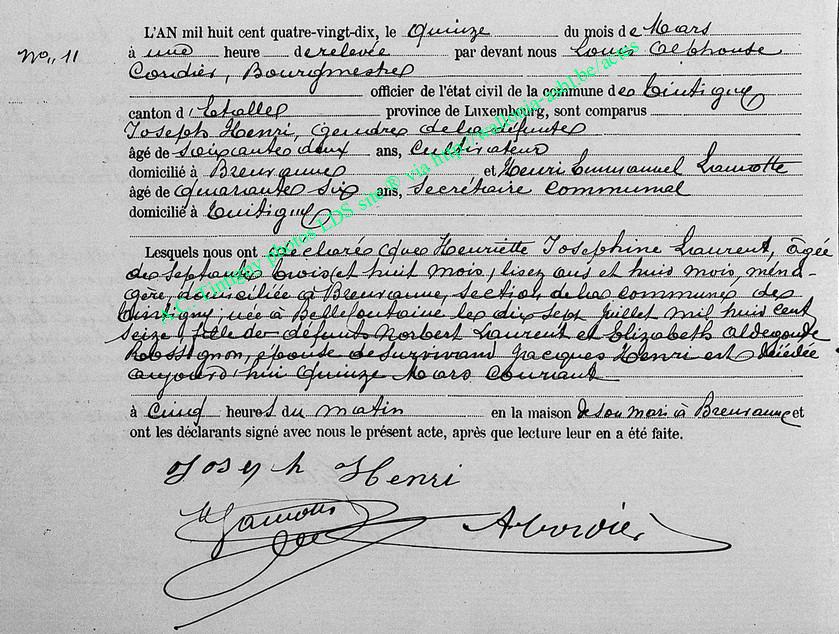 L'AN mil huit cent quatre-vingt-dix, le quinze du mois de Mars
No, 11
à une heure de relevée par devant nous Louis Alphonse
Cordier, Bourgmestre
officier de l'état civil de la commune de Tintigny
canton d'Etalle province de Luxembourg, sont comparus
Joseph Henri, gendre de la défunte
âgé de soixante deux ans, Cultivateur
domicilié à Breuvanne et Henri Emmanuel Lamotte
âgé de quarante six ans, secrétaire communal
domicilié à Tintigny
Lesquels nous ont déclaré que Henriette Josephine Laurent, âgée
de septante trois et huit mois, lisez ans et huit mois, ména-
gère, domiciliée à Breuvanne, section de la commune de
Tintigny, née à Bellefontaine le dix sept juillet mil huit cent
seize, fille de défunts Norbert Laurent et Elizabeth Aldegonde
Rossignon, épouse de survivant Jacques Henri est décédée
aujourd'hui quinze Mars courant
à cinq heures du matin en la maison de son mari à Breuvanne et
ont les déclarants signé avec nous le présent acte, après que lecture leur en a été faite.
Joseph Henri
Lamotte
A Cordier
A.C. Tintigny photos LDS site® via http://wallonia-asbl.be/actes